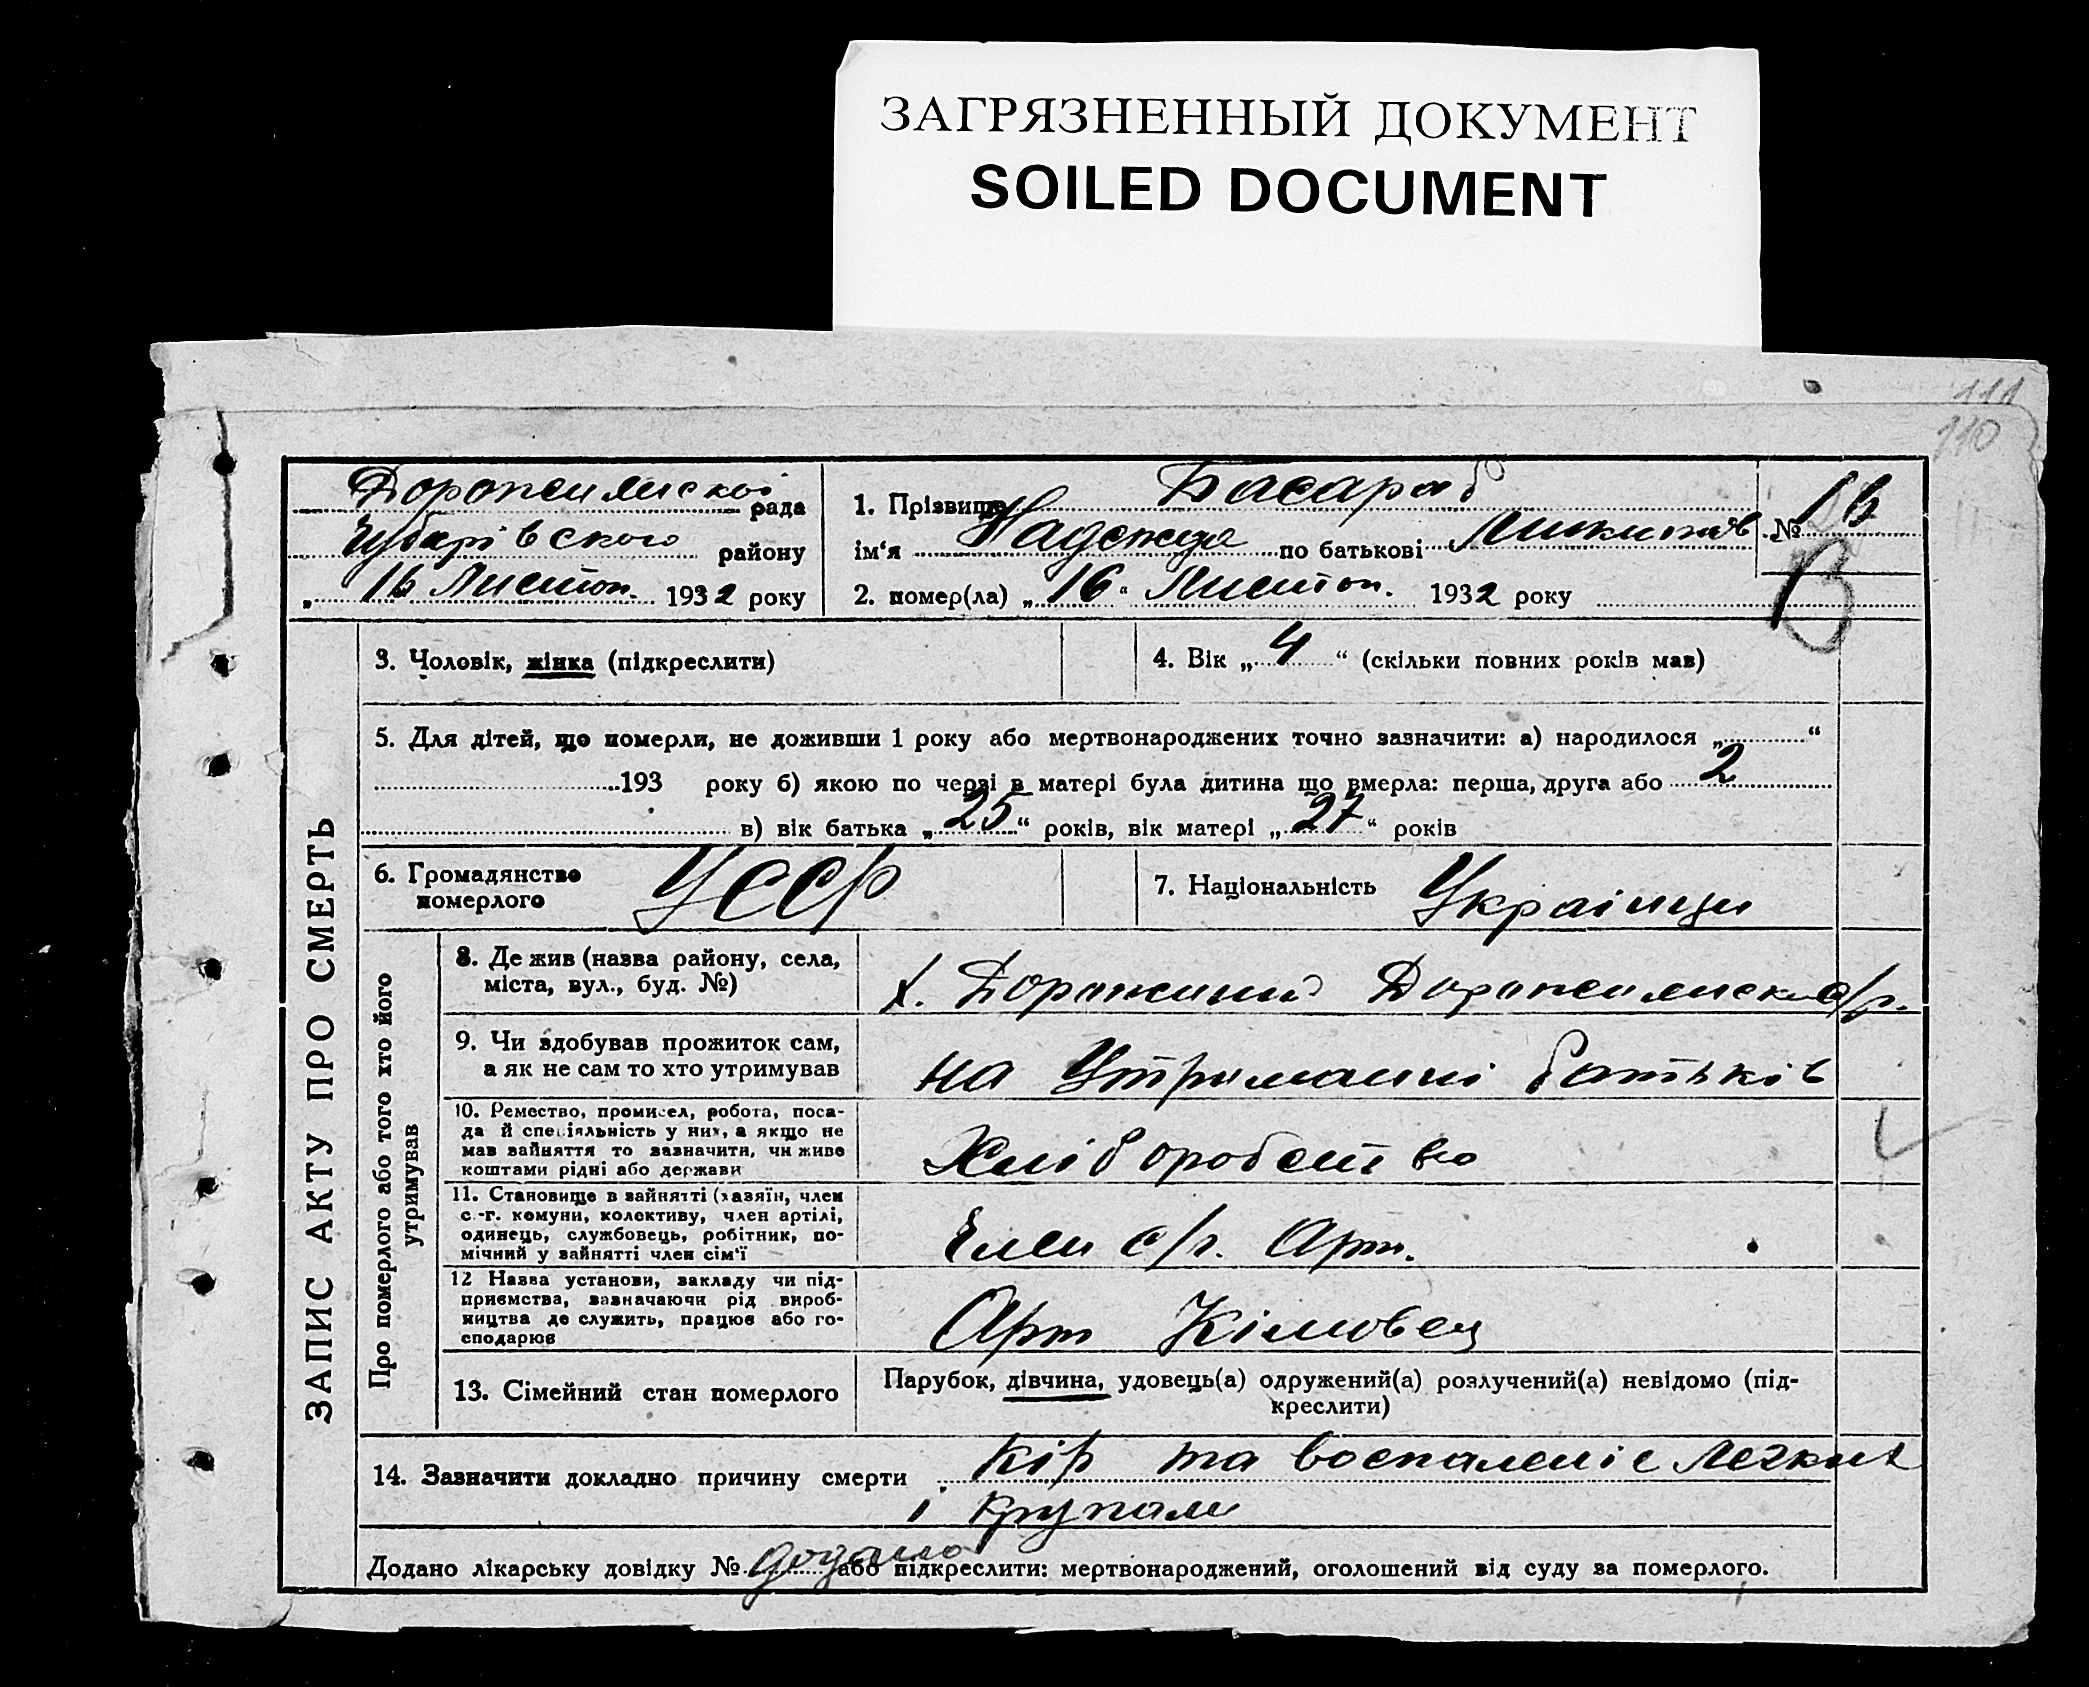 ЗАГРЯЗНЕННЫЙ ДОКУМЕНТ
SOILED DOCUMENT
111
110
ЗАПИС АКТУ ПРО СМЕРТЬ
рада
Чубарівського району
„ 16 Листоп. 1932 року
1. Прізвище Басараб
ім'я Надежда по батькові
2. помер(ла) „ 16 “ Листоп. 1932 року
№ 16
В
3. Чоловік, жінка (підкреслити)
4. Вік „ 4 “ (скільки повних років мав)
5. Для дітей, що померли, не доживши 1 року або мертвонароджених точно зазначити: а) народилося „ “
193 року б) якою по черзі в матері була дитина що вмерла: перша, друга або 2
в) вік батька „ 25 “ років, вік матері „ 27 “ років
6. Громадянство
померлого
УССР
7. Національність Українци
Про померлого або того хто його
утримував
8. Де жив (назва району, села,
міста, вул., буд. №)
х.
9. Чи здобував прожиток сам,
а як не сам то хто утримував
на Утриманні батьків
10. Ремество, промисел, робота, поса-
да й спеціяльність у них, а якщо не
мав зайняття то зазначити, чи живе
коштами рідні або держави
Хліборобство
11. Становище в зайнятті (хазяїн, член
с.-г. комуни, колективу, член артілі,
одинець, службовець, робітник, по-
мічний у зайнятті член сім'ї
Член с/г. Арт.
12 Назва установи, закладу чи під-
приємства, зазначаючи рід вироб-
ництва де служить, працює або го-
сподарює
Арт Кімовец
13. Сімейний стан померлого
Парубок, дівчина, удовець(а) одружений(а) розлучений(а) невідомо (під-
креслити)
14. Зазначити докладно причину смерти Кір та воспаленіе легких
і крупали
Додано лікарську довідку № додано або підкреслити: мертвонароджений, оголошений від суду за померлого.